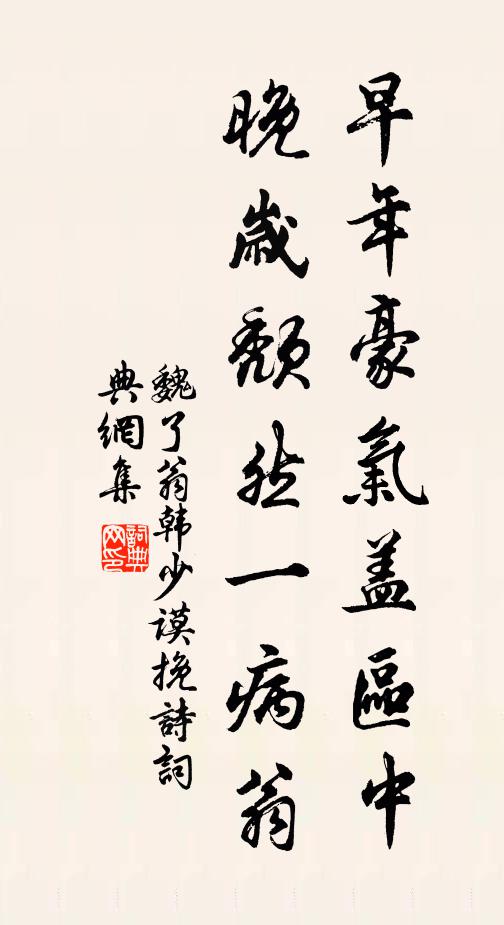 早年豪氣蓋區中
晚歲頹然一病翁
魏了翁韩少謨挽詩詞
典網集
詞典網印